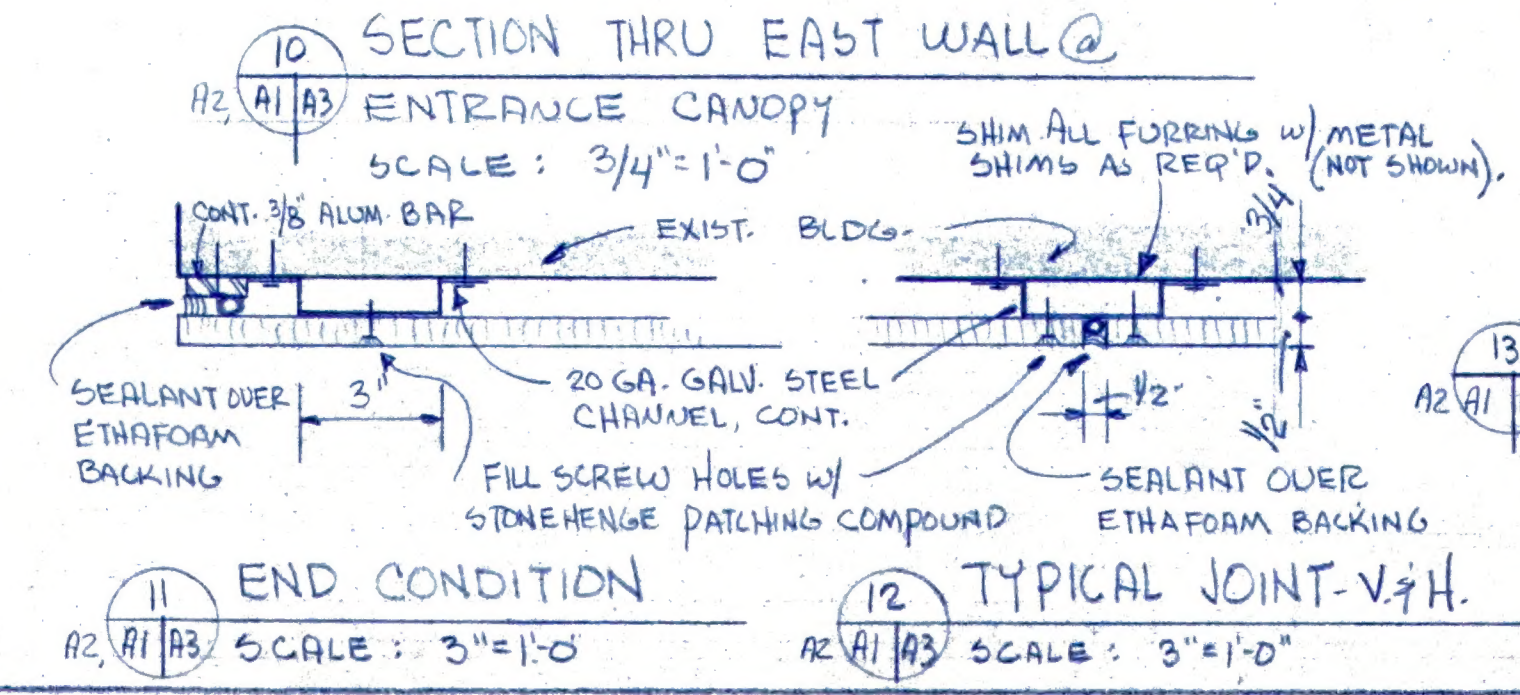 10
SECTION THRU EAST WALL @
A2, A1 A3
ENTRANCE CANOPY
SCALE : 3/4"=1'-0"
SHIM ALL FURRING W/ METAL
SHIMS AS REQ'D. (NOT SHOWN).
CONT. 3/8" ALUM. BAR
EXIST. BLDG.
3/4
SEALANT OVER
ETHAFOAM
BACKING
3"
20 GA. GALV. STEEL
CHANNEL, CONT.
1/2"
1/2"
13
A2 A1
FILL SCREW HOLES W/
STONEHENGE PATCHING COMPOUND
SEALANT OVER
ETHAFOAM BACKING
11
END CONDITION
A2, A1 A3
SCALE : 3"=1'-0
12
TYPICAL JOINT-V.&H.
A2 A1 A3
SCALE : 3"=1'-0"